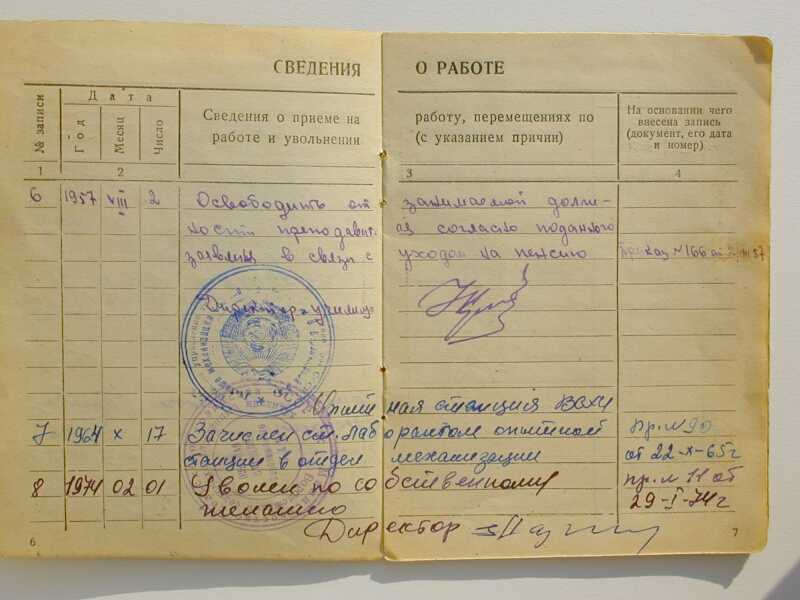 СВЕДЕНИЯ О РАБОТЕ
№ записи
Дата
Год
Месяц
Число
Сведения о приеме на работу, перемещениях по
работе и увольнении (с указанием причин)
На основании чего
внесена запись
(документ, его дата
и номер)
1 2 3 4
6 1957 VIII 2 Освободить от занимаемой долж-
ности преподават. согласно поданного
заявления в связи с уходом на пенсию Приказ №166 от 57
Директор училищ
Опытная станция
7 1964 X 17 Зачислен ст. лаборантом опытной Пр. №90
станции в отдел механизации от 22-X-65г
8 1974 02 01 Уволен по собственному пр. №11 от
желанию 29-I-74г
Директор
6
7